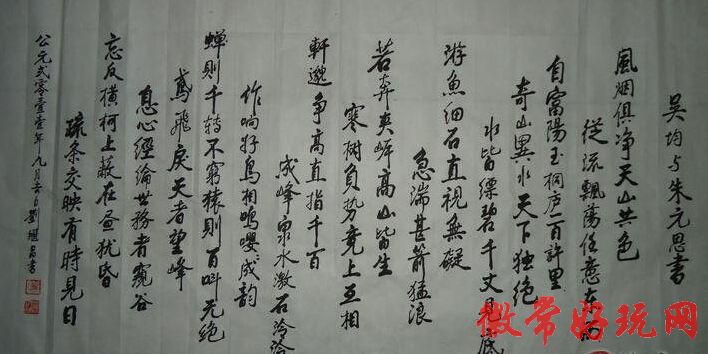 吴均与朱元思書
風烟俱净天山共色
從流飄蕩任意东西
自富陽至桐庐一百許里
奇山異水天下独绝
水皆缥碧千丈見底
游魚细石直視無礙
急湍甚箭猛浪
若奔夹岸高山皆生
寒树负势竞上互相
軒邈争高直指千百
成峰泉水激石泠泠
作响好鸟相鳴嘤嘤成韵
蝉则千转不窮猿则百叫无绝
鸢飛戾天者望峰
息心經綸世務者窥谷
忘反横柯上蔽在昼犹昏
疏条交映有時見日
公元贰零壹壹年九月
劉继昌書
微常好玩网